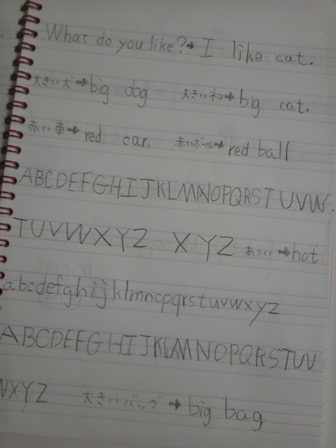 What do you like?→I like cat.
大きい犬→big dog 大きいネコ→big cat.
赤い車→red car. 赤いボール→red ball
ABCDEFGHIJKLMNOPQRSTUVW.
TUVWXYZ XYZ あつい→hot
abcdefghijklmnopqrstuvwxyz
ABCDEFGHIJKLMNOPQRSTUV
WXYZ 大きいバッグ→big bag